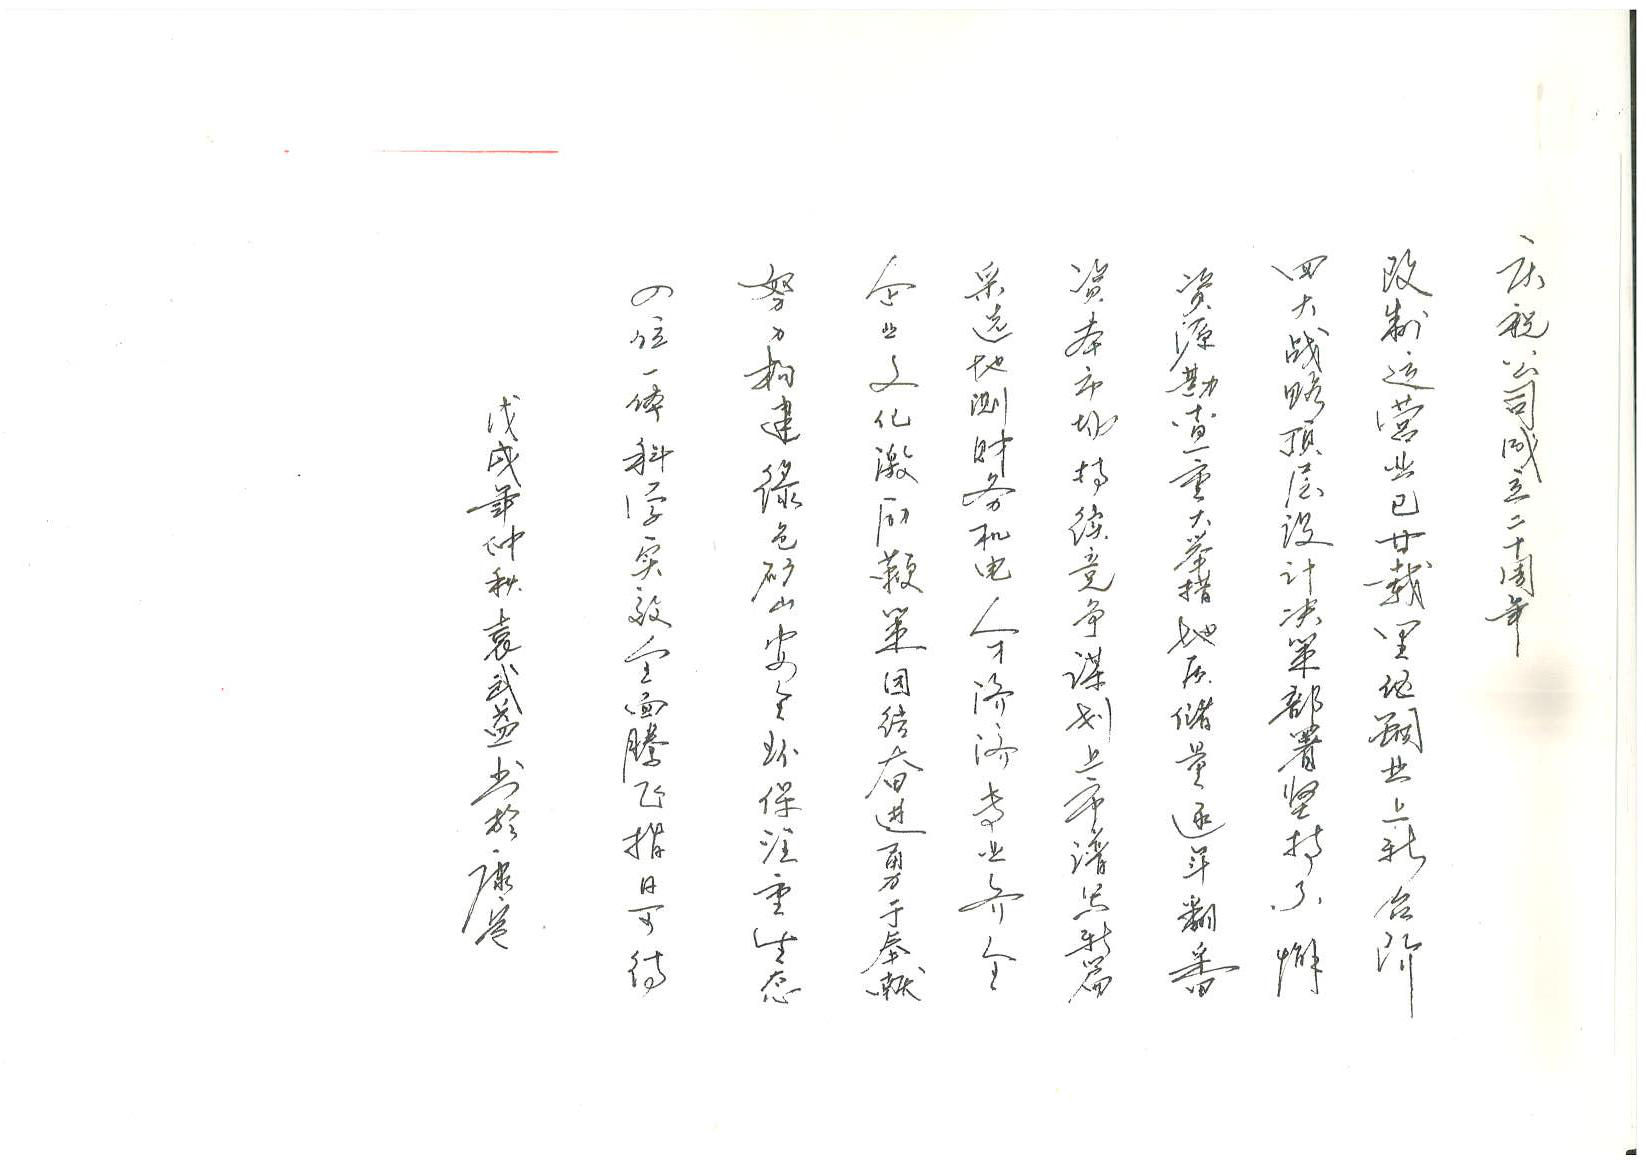 庆祝公司成立二十周年
改制运营业已廿载里伍翻业上新台阶
四大战略顶层设计决策部署坚持不懈
资源勘查重大举措地质储量逐年翻番
资本市场持续竞争谋划上市谱写新篇
采选地测财务机电人才济济专业齐全
企业文化激励鞭策团结奋进勇于奉献
努力构建绿色矿山安全环保注重生态
四位一体科学实效全面腾飞指日可待
戊戌年仲秋袁武益书於康